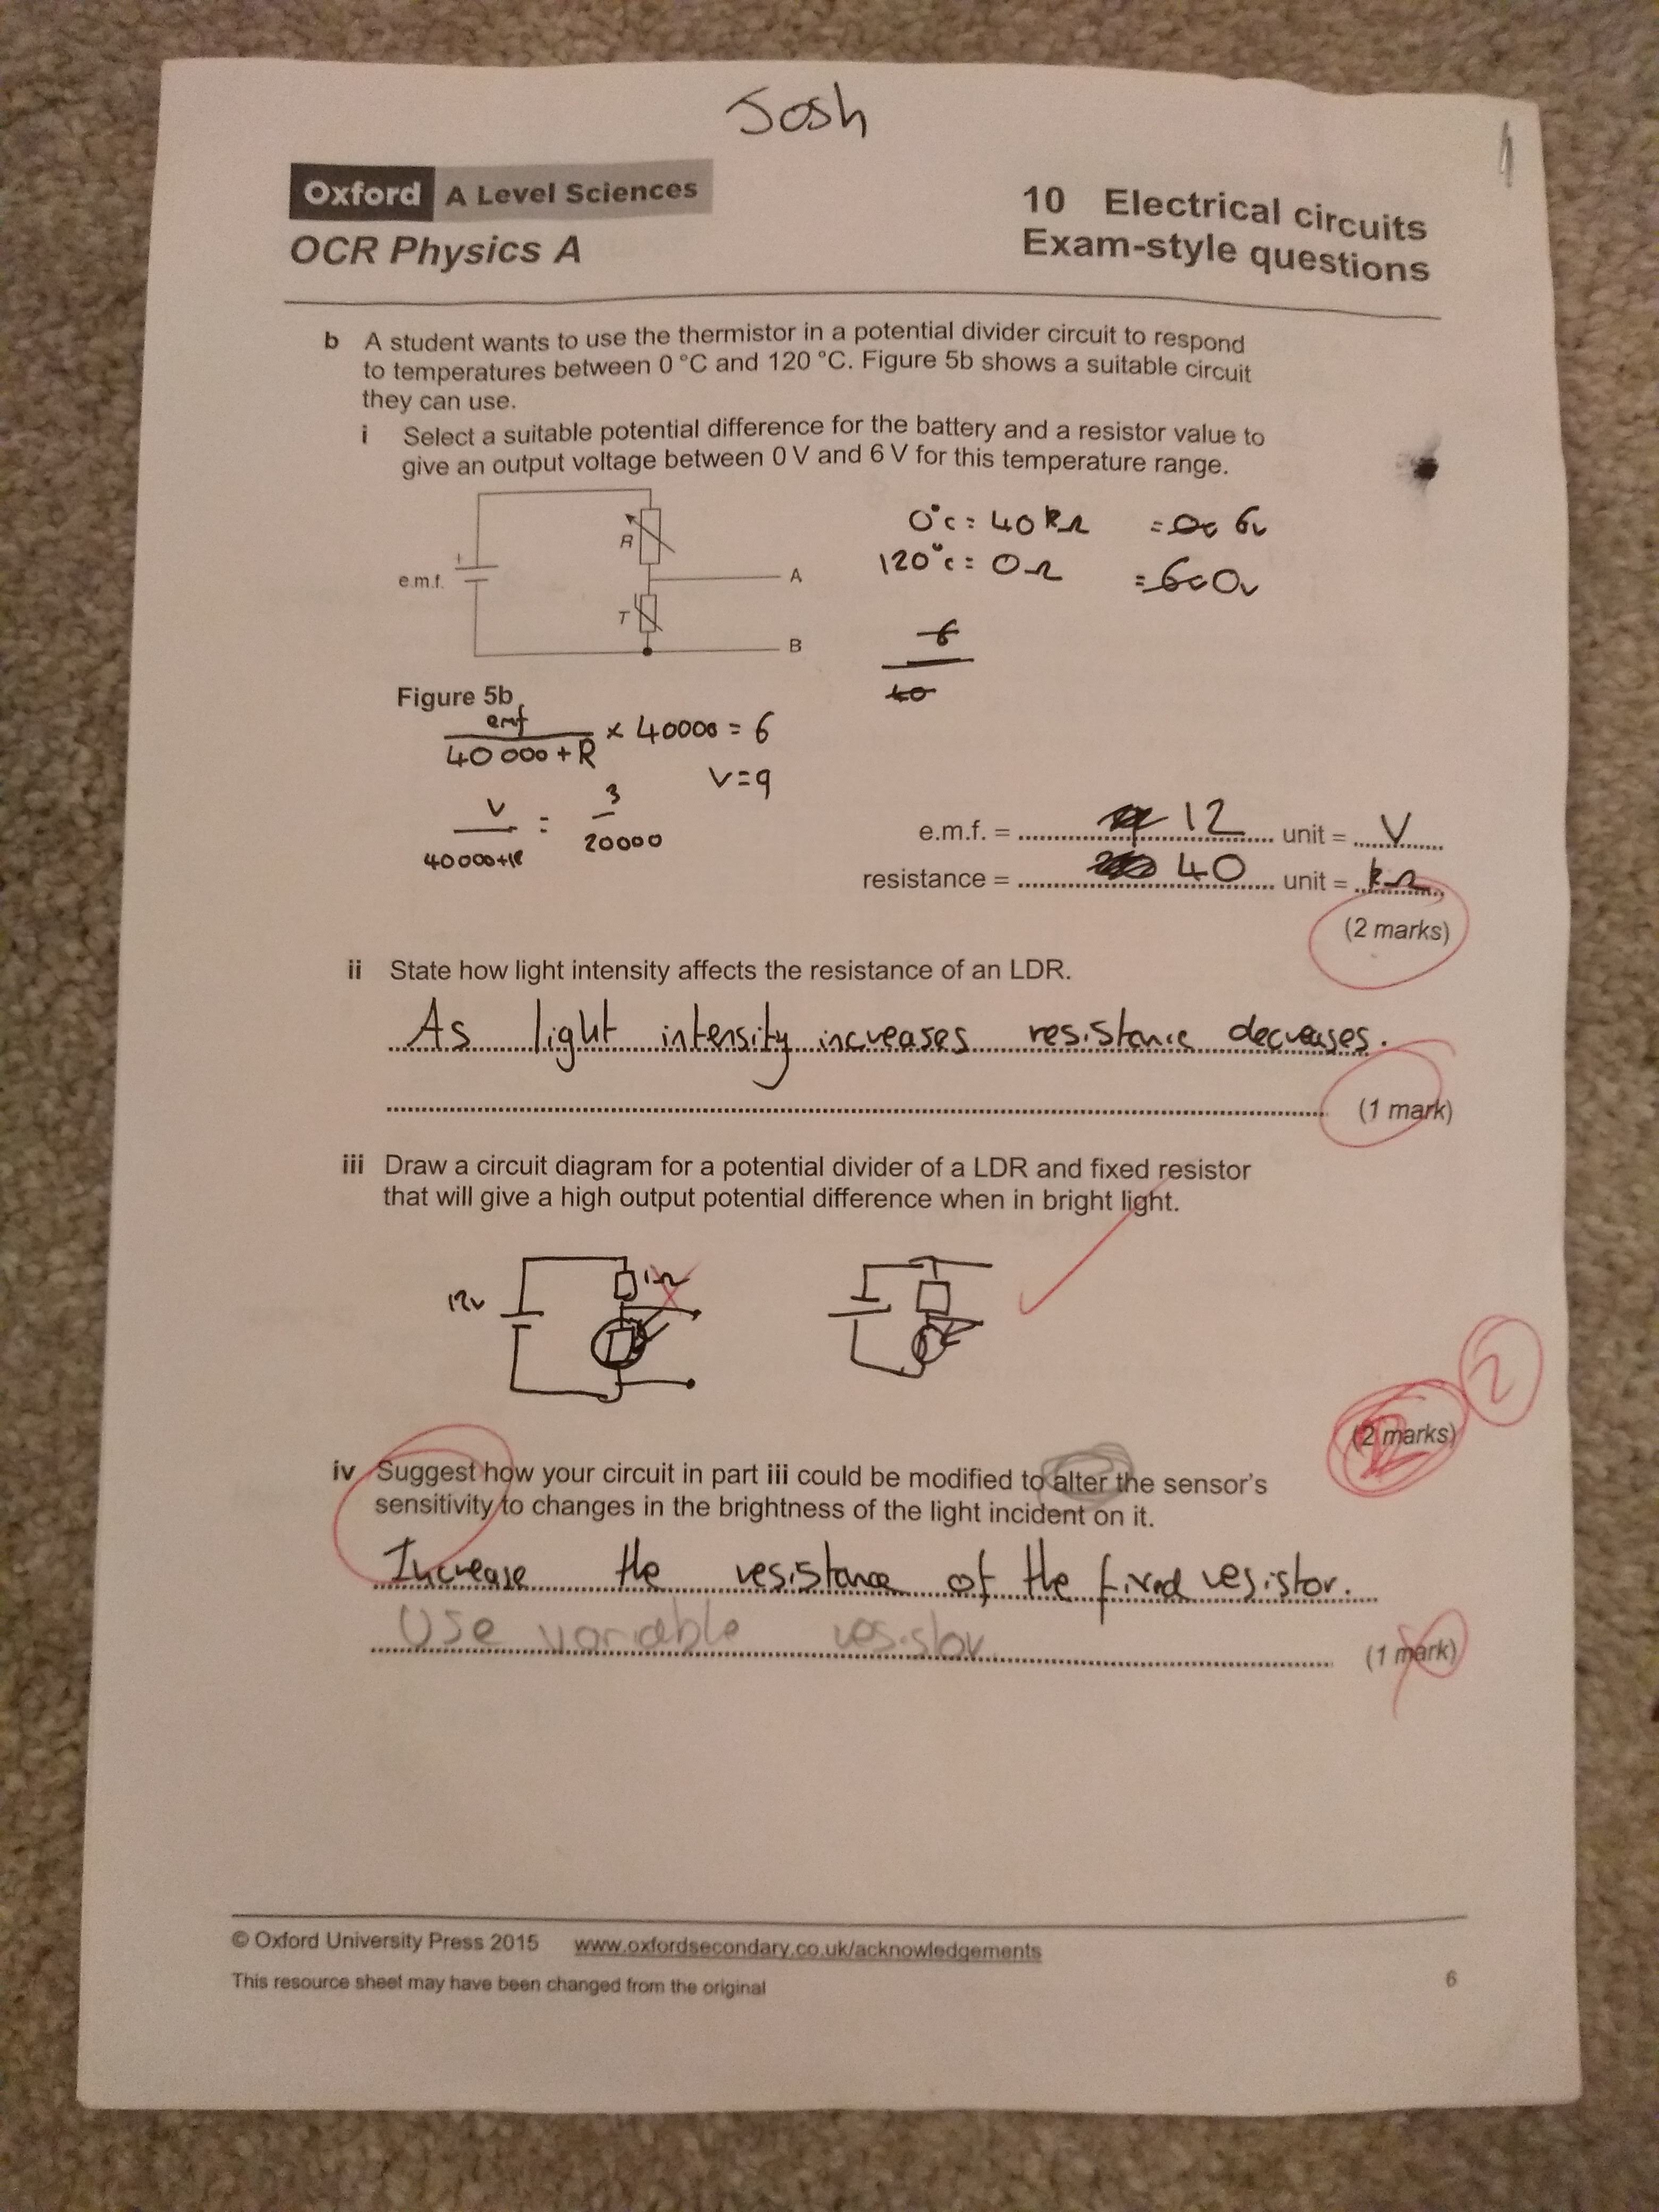 Josh
Oxford A Level Sciences
OCR Physics A
10 Electrical circuits
Exam-style questions
b A student wants to use the thermistor in a potential divider circuit to respond
to temperatures between 0 °C and 120 °C. Figure 5b shows a suitable circuit
they can use.
i Select a suitable potential difference for the battery and a resistor value to
give an output voltage between 0 V and 6 V for this temperature range.
0°c = 40 kΩ = 6v
120°c = 0Ω = 0v
R
+
e.m.f.
A
T
B
6
40
Figure 5b
emf
40 000 + R
× 40000 = 6
V = 9
V
40000+R
=
3
20000
e.m.f. = 12 unit = V
resistance = 40 unit = kΩ
(2 marks)
ii State how light intensity affects the resistance of an LDR.
As light intensity increases resistance decreases.
(1 mark)
iii Draw a circuit diagram for a potential divider of a LDR and fixed resistor
that will give a high output potential difference when in bright light.
12v
1Ω
2
(2 marks)
iv Suggest how your circuit in part iii could be modified to alter the sensor's
sensitivity to changes in the brightness of the light incident on it.
Increase the resistance of the fixed resistor.
Use variable resistor
(1 mark)
© Oxford University Press 2015 www.oxfordsecondary.co.uk/acknowledgements
This resource sheet may have been changed from the original
6